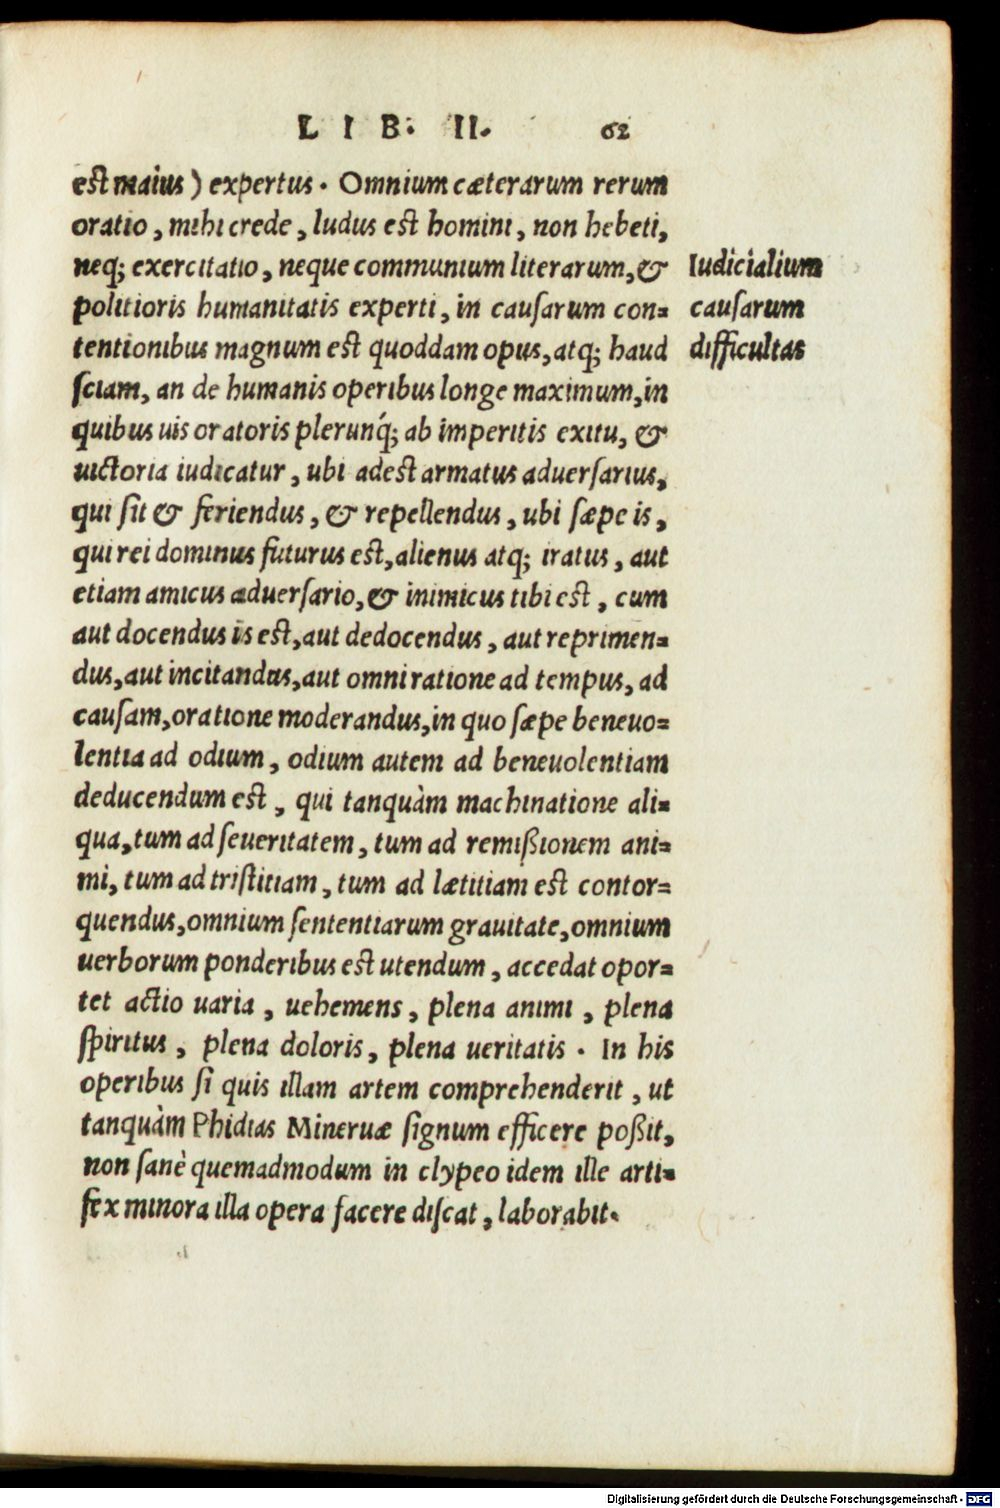 LIB. II. 62
est maius) expertus. Omnium cæterarum rerum
oratio, mihi crede, ludus est homini, non hebeti,
neq; exercitatio, neque communium literarum, &
politioris humanitatis experti, in cauſarum con=
tentionibus magnum est quoddam opus, atq; haud
ſciam, an de humanis operibus longe maximum, in
quibus uis oratoris plerunq́; ab imperitis exitu, &
uictoria iudicatur, ubi adest armatus aduerſarius,
qui ſit & feriendus, & repellendus, ubi ſæpe is,
qui rei dominus futurus est, alienus atq; iratus, aut
etiam amicus aduerſario, & inimicus tibi est, cum
aut docendus is est, aut dedocendus, aut reprimen=
dus, aut incitandus, aut omni ratione ad tempus, ad
cauſam, oratione moderandus, in quo ſæpe beneuo=
lentia ad odium, odium autem ad beneuolentiam
deducendum est, qui tanquàm machinatione ali=
qua, tum ad ſeueritatem, tum ad remißionem ani=
mi, tum ad triſtitiam, tum ad lætitiam est contor=
quendus, omnium ſententiarum grauitate, omnium
uerborum ponderibus est utendum, accedat opor=
tet actio uaria, uehemens, plena animi, plena
ſpiritus, plena doloris, plena ueritatis. In his
operibus ſi quis illam artem comprehenderit, ut
tanquàm Phidias Mineruæ ſignum efficere poßit,
non ſanè quemadmodum in clypeo idem ille arti=
fex minora illa opera facere diſcat, laborabit.
Iudicialium
cauſarum
difficultas
Digitalisierung gefördert durch die Deutsche Forschungsgemeinschaft - DFG